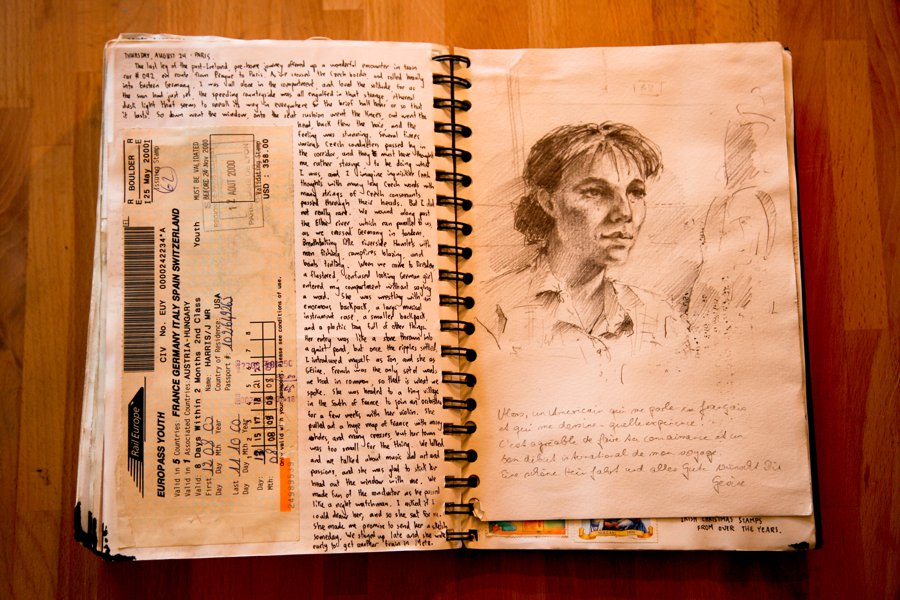 THURSDAY, AUGUST 24 · PARIS
The last leg of the post-Ireland, pre-home journey offered up a wonderful encounter in train
car # 092 en route from Prague to Paris. As we crossed the Czech border and rolled heavily
into Eastern Germany, I was all alone in the compartment and loved the solitude for as
the sun had just set, the speeding countryside was all engulfed in that strange, ethereal
dusk light that seems to unroll its way everywhere for the brief half hour or so that
it lasts. So down went the window, onto the seat cushion went the knees, out went the
head, back flew the hair, and the
feeling was stunning. Several times
various Czech conductors passed by in
the corridor, and they must have thought
me rather strange to be doing what
I was, and I imagine inquisitive Czech
thoughts with many long Czech words with
many strings of Czech consonants
passed through their heads. But I did
not really care. We wound along past
the Elbe river which ran parallel to us
as we crossed Germany in tandem.
Breathtaking little riverside hamlets with
men fishing, campfires blazing, and
boats trolling. When we came to Dresden
a flustered, confused looking German girl
entered my compartment without saying
a word. She was wrestling with an
enormous backpack, a large musical
instrument case, a smaller backpack,
and a plastic bag full of other things.
Her entry was like a stone thrown into
a quiet pond, but once the ripples settled,
I introduced myself as Jon, and she as
Gesine. French was the only set of words
we had in common, so that is what we
spoke. She was headed to a tiny village
in the South of France to join an orchestra
for a few weeks with her violin. She
pulled out a huge map of France with many
circles, and many creases, but her town
was too small for the thing. We talked
and we talked about music and art and
passions, and she was glad to stick her
head out the window with me. We
made fun of the conductor as he passed
like a night watchman. I asked if I
could draw her, and so she sat for me.
She made me promise to send her a sketch
someday. We stayed up late and she woke
early to get another train in Metz.
R BOULDER R
E E
25 May 2000
Issuing Stamp
62
MUST BE VALIDATED
BEFORE 24 Nov 2000
12 AOUT 2000
Validating Stamp
USD : 358.00
CIV No. EUY 0000242234*A
Rail Europe
EUROPASS YOUTH
Valid in 5 Countries: FRANCE GERMANY ITALY SPAIN SWITZERLAND
Valid in 1 Associated Countries: AUSTRIA-HUNGARY
Valid 8 Days Within 2 Months 2nd Class Youth
Name: HARRIS/J MR
Country of Residence: USA
Passport #:
First
Day Mth Year
Last
Day Mth Year
Day:
Mth:
Only valid with your passport. Please see conditions of use.
Mero, un Américain qui me parle en français
et qui me dessine - quelle expérience!
C'est agréable de faire sa connaissance et un
bon début international de mon voyage.
Eine schöne Heimfahrt und alles Gute wünscht Dir
IRISH CHRISTMAS STAMPS
FROM OVER THE YEARS.